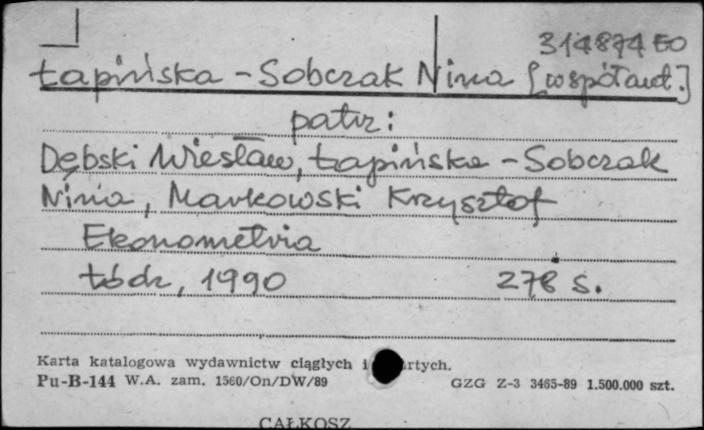 314874 EO
Łapińska - Sobczak Nina [współaut.]
patrz:
Dębski Wiesław, Łapińska - Sobczak
Nina, Markowski Krzysztof
Ekonometria
Łódź, 1990 278 s.
Karta katalogowa wydawnictw ciągłych i artych.
Pu-B-144 W.A. zam. 1560/On/DW/89 GZG Z-3 3465-89 1.500.000 szt.
CAŁKOSZ